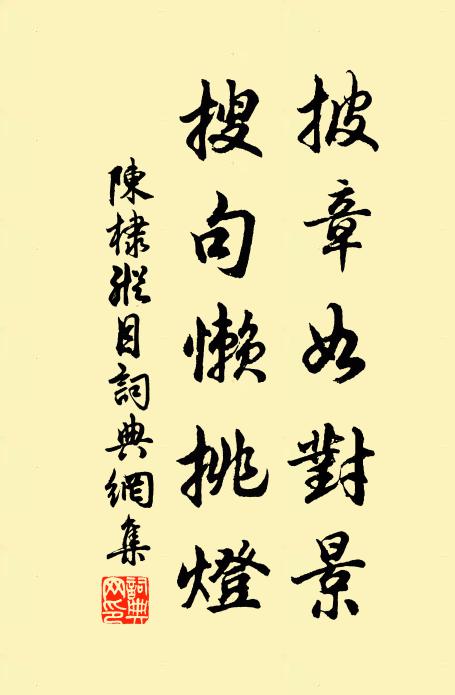 披章如對景
搜句懶挑燈
陳棣縱目詞典網集
詞典網印